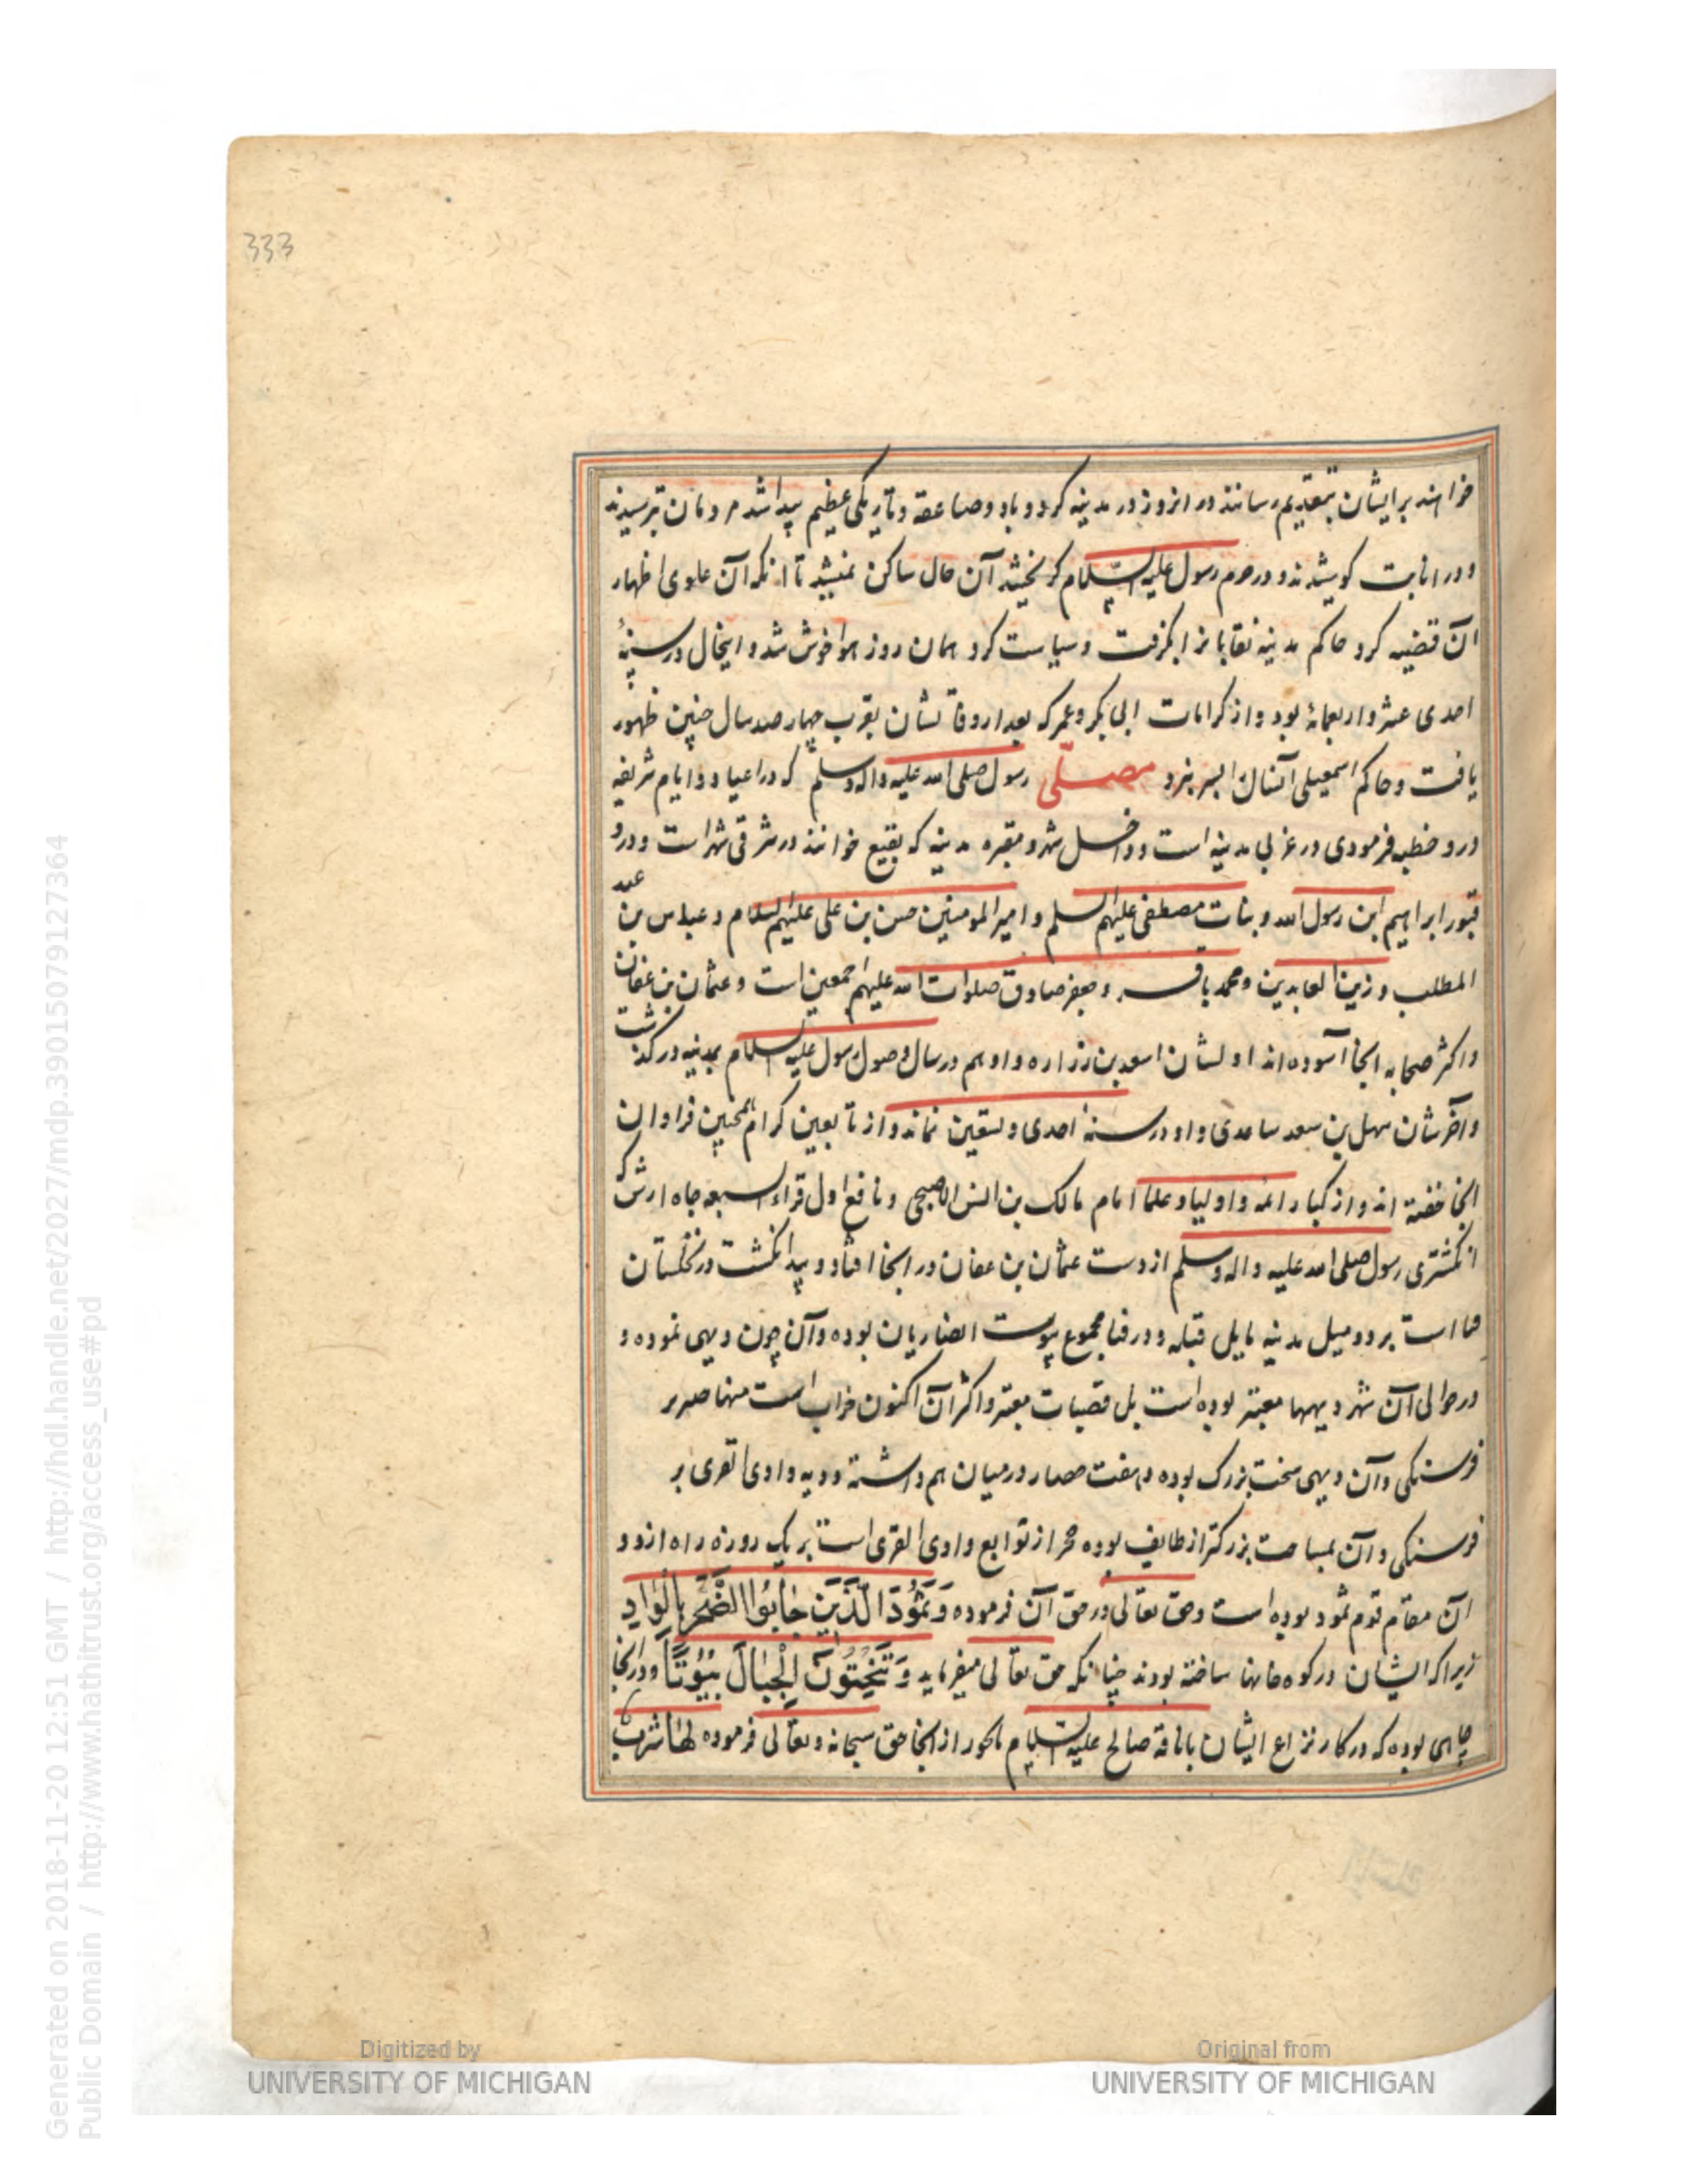 333
خواهند بر ایشان بتقدیم رسانند در انروز در مدینه کرد و باد و صاعقه و تاریکی عظیم پیدا شد مردمان بترسیدند
و در انابت کوشیدند و در حرم رسول علیه السلام کریختند آن حال ساکن نمیشد تا انکه آن علوی اظهار
آن قضیه کرد حاکم مدینه نقابانرا بکرفت و سیاست کرد همان روز هوا خوش شد و اینحال در سنهٔ
احدی عشر و اربعمائه بود و از کرامات ابی بکر و عمر که بعد از وفاتشان بقرب چهارصد سال چنین ظهور
یافت و حاکم اسمعیلی آنسال بسر نبرد مصلّی رسول صلی الله علیه واله وسلم که در اعیاد و ایام شریفه
درو خطبه فرمودی در غربی مدینه است و داخل شهر و مقبره مدینه که بقیع خوانند در شرقی شهر است و درو
قبور ابراهیم ابن رسول الله و بنات مصطفی علیهم السلم و امیر المومنین حسن بن علی علیهم السلام و عباس بن عبد
المطلب و زین العابدین و محمد باقر و جعفر صادق صلوات الله علیهم اجمعین است و عثمان بن عفان
و اکثر صحابه انجا آسوده اند اولشان اسعد بن زراره و او هم در سال وصول رسول علیه السلام بمدینه در کذشت
و آخرشان سهل بن سعد ساعدی و او در سنهٔ احدی و تسعین نماند و از تابعین کرام همچنین فراوان
انجا خفته اند و از کبار ائمه و اولیا و علما امام مالک بن انس الاصبحی و نافع اول قراء سبعه چاه اریس که
انکشتری رسول صلی الله علیه واله وسلم از دست عثمان بن عفان در انجا افتاد و پیدا نکشت در نخلستان
قبا است بر دو میل مدینه مایل قبله و در قبا مجموع بیوت انصاریان بوده و آن چون دیهی نموده و
در حوالی آن شهر دیهها معتبر بوده است بل قصبات معتبر و اکثر آن اکنون خراب است منها خیبر بر
فرسنکی و آن دیهی سخت بزرک بوده و هفت حصار در میان هم داشته و دیه وادی القری بر
فرسنکی و آن بمساحت بزرکتر از طایف بوده حجر از توابع وادی القری است بر یک روزه راه ازو و
آن مقام قوم ثمود بوده است و حق تعالی در حق آن فرموده وَثَمُودَ الَّذِینَ جَابُوا الصَّخْرَ بِالْوَادِ
زیرا که ایشان در کوه خانها ساخته بودند چنانکه حق تعالی میفرماید وَتَنْحِتُونَ الْجِبَالَ بُیُوتًا و در انجا
چاهی بوده که در کار نزاع ایشان با ناقه صالح علیه السلام بخور از انجا حق سبحانه و تعالی فرموده لها شرب
Digitized by
UNIVERSITY OF MICHIGAN
Original from
UNIVERSITY OF MICHIGAN
Generated on 2018-11-20 12:51 GMT / http://hdl.handle.net/2027/mdp.39015079127364
Public Domain / http://www.hathitrust.org/access_use#pd